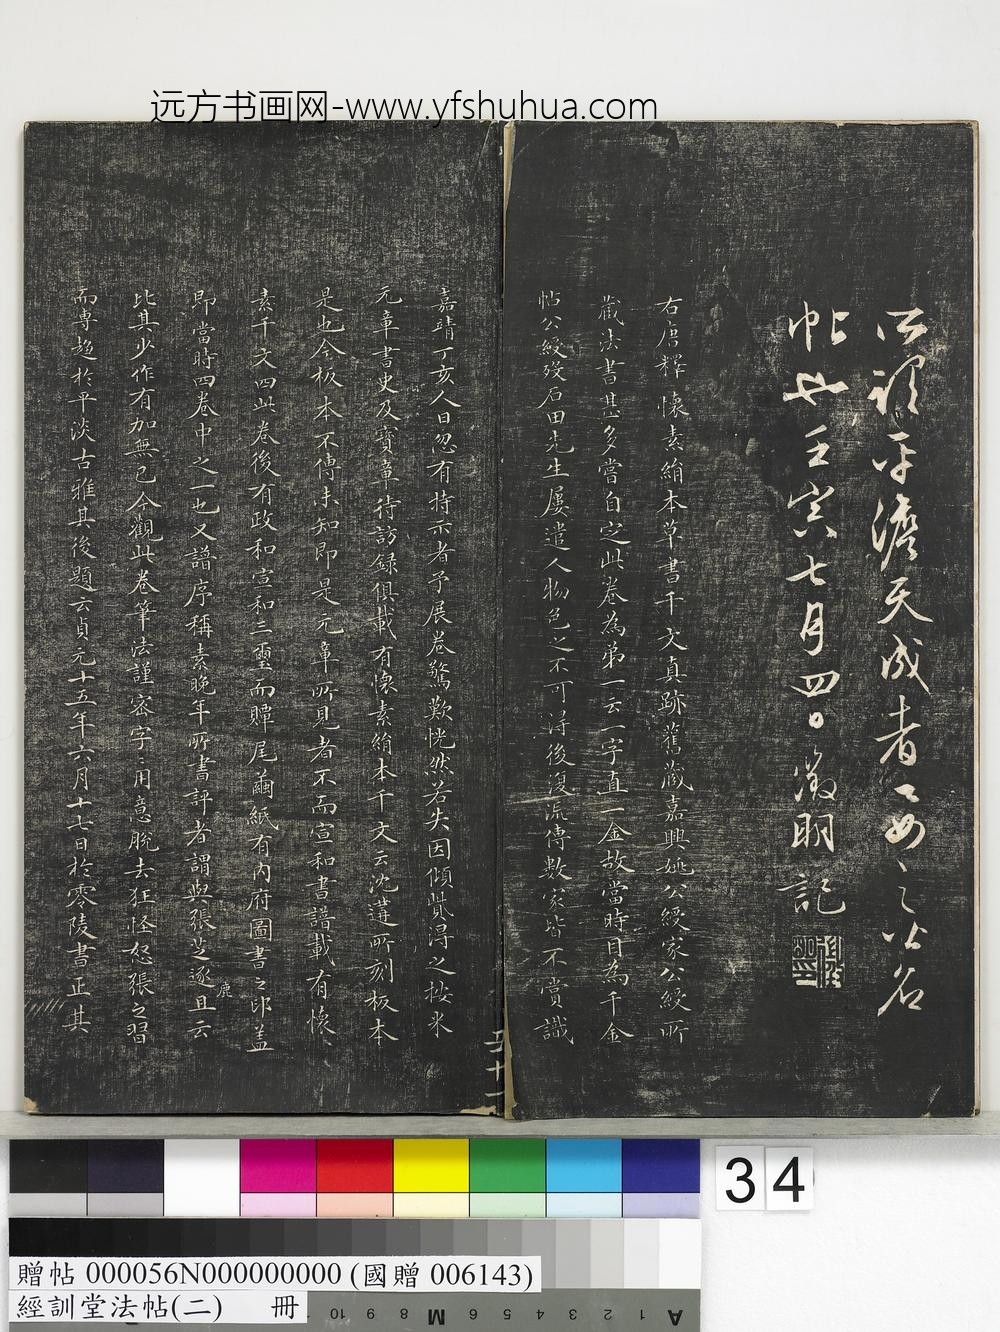 远方书画网-www.yfshuhua.com
所謂平澹天成者
帖也壬寅七月四日徵明記
右唐釋懷素絹本草書千文真跡舊藏嘉興姚公綬家公綬所
藏法書甚多嘗自定此卷為弟一云一字直一金故當時目為千金
帖公綬歿石田先生屢遣人物色之不可得後復流傳數家皆不賞識
嘉靖丁亥人日忽有持示者予展卷驚歎恍然若失因傾貲得之按米
元章書史及寶章待訪錄俱載有懷素絹本千文云沈遘所刻板本
是也今板本不傳未知即是元章所見者不而宣和書譜載有懷
素千文四此卷後有政和宣和二璽而贉尾繭紙有內府圖書之印蓋
即當時四卷中之一也又譜序稱素晚年所書評者謂與張芝逐鹿且云
比其少作有加無已今觀此卷筆法謹密字〻用意脫去狂怪怒張之習
而專趨於平淡古雅其後題云貞元十五年六月十七日於零陵書正其
五十二
34
贈帖 000056N000000000 (國贈 006143)
經訓堂法帖(二) 冊
A 1 2 3 4 5 6 M 8 9 10